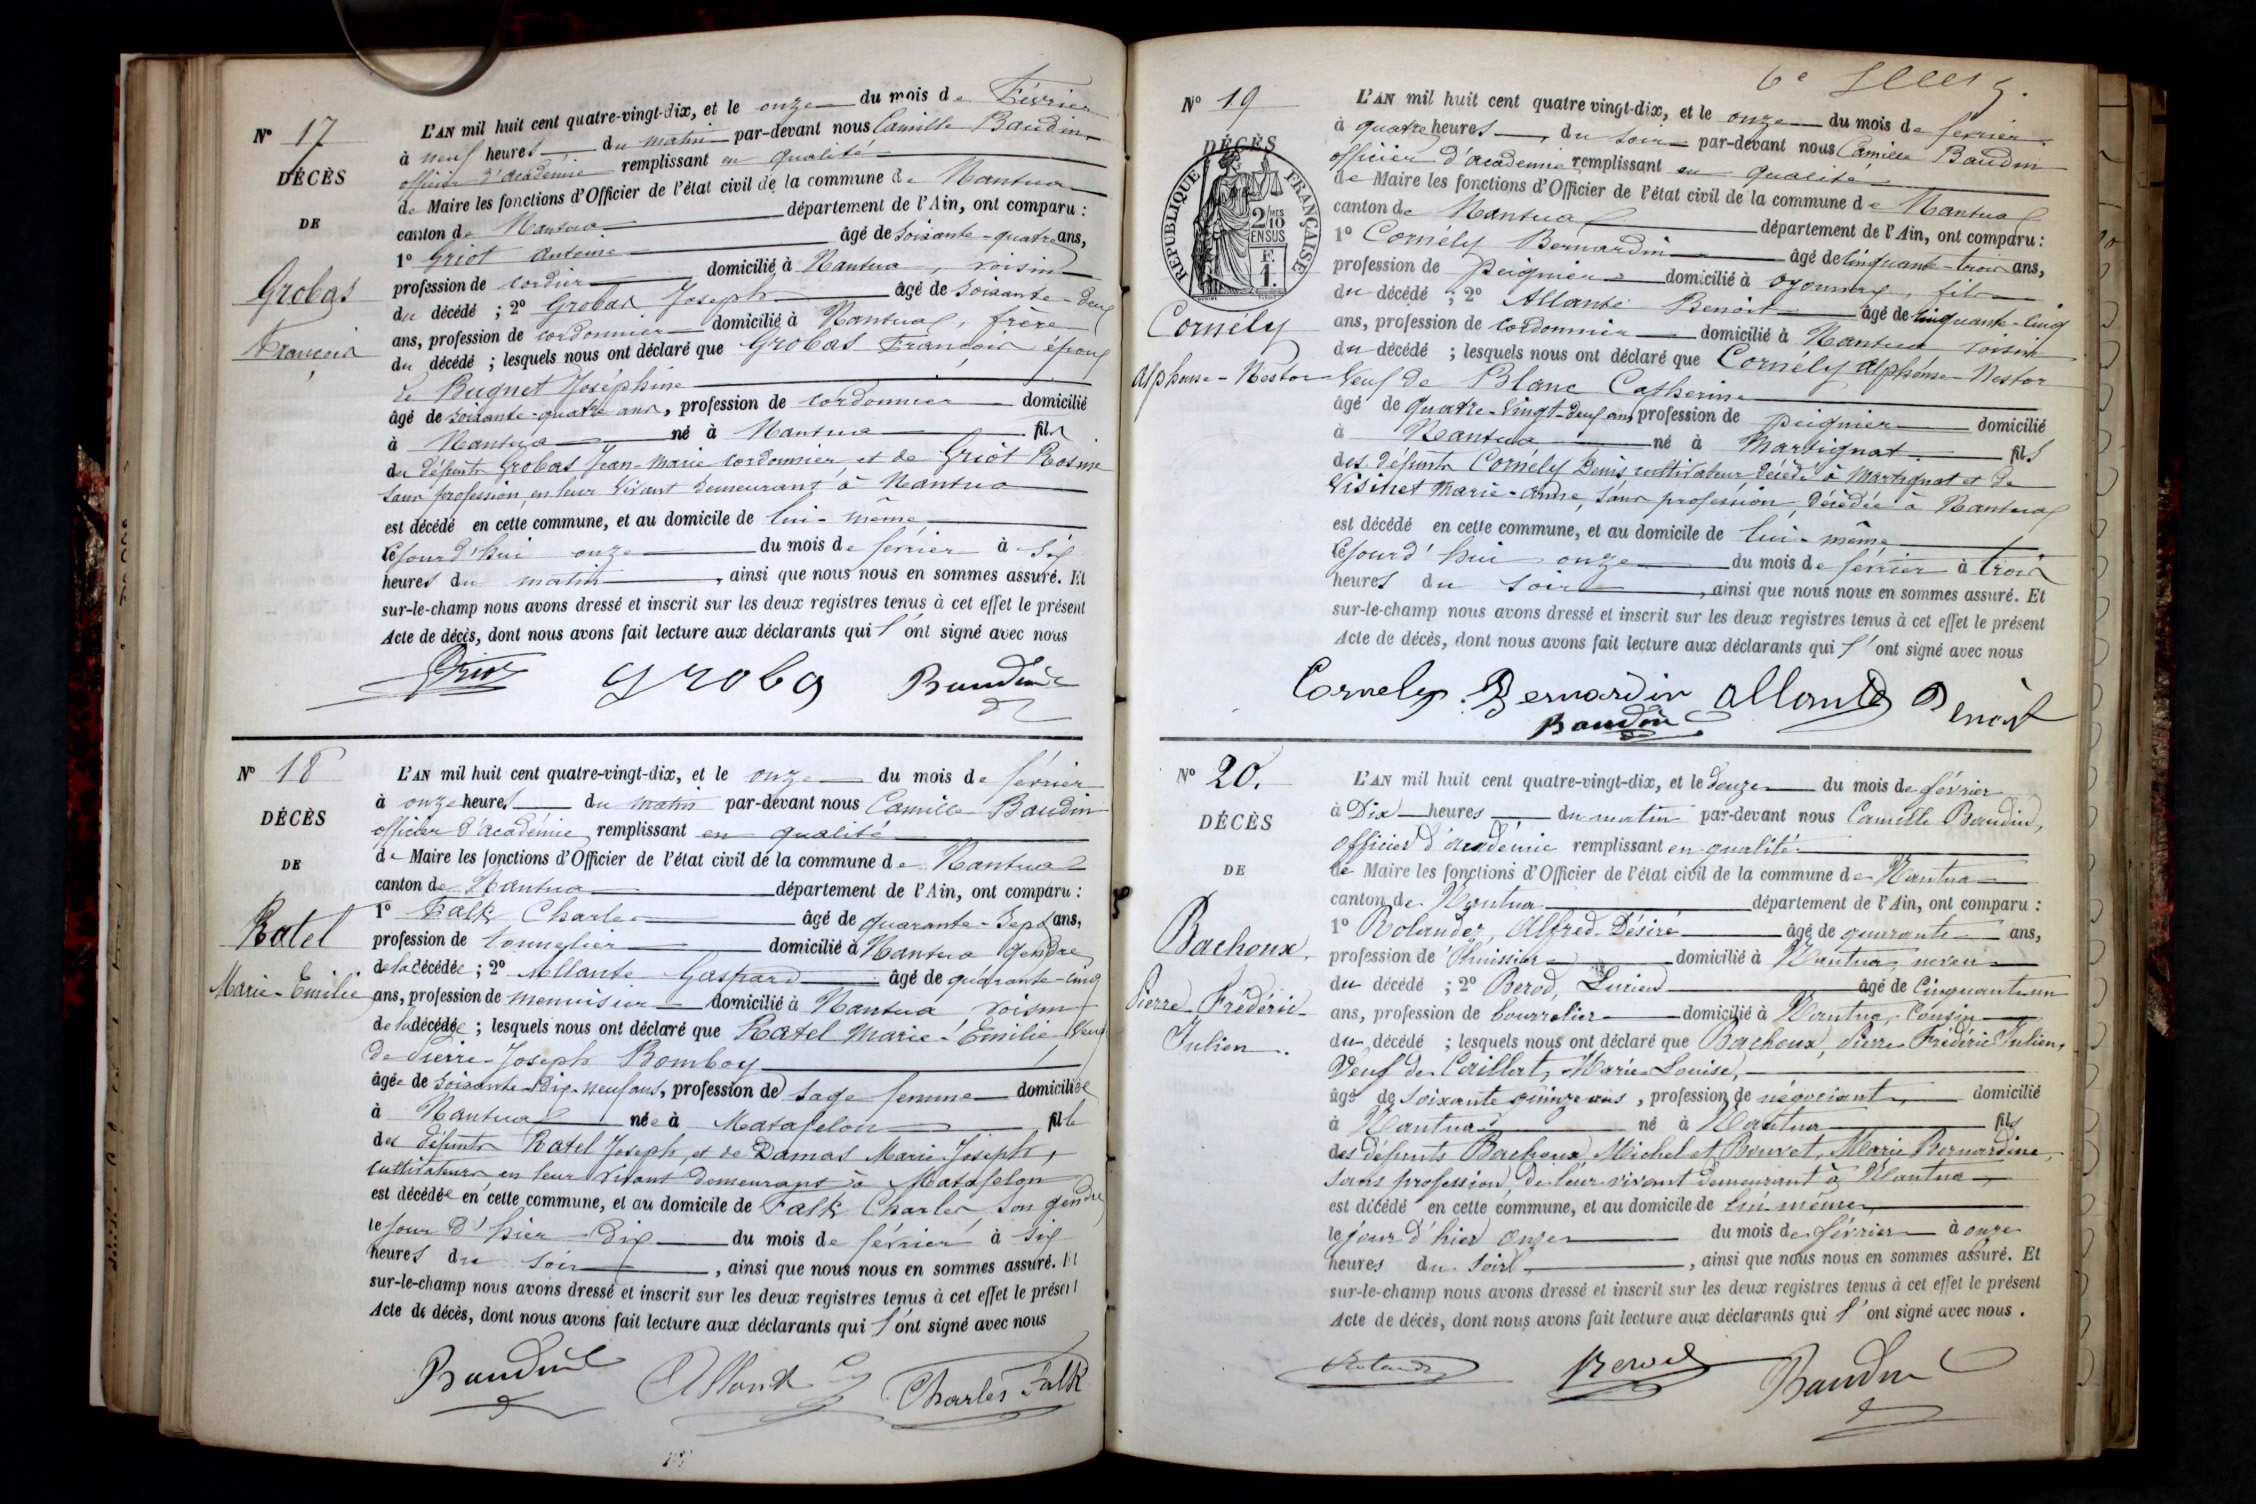 N° 17
DÉCÈS
DE
Grobas
François
L'AN mil huit cent quatre-vingt-dix, et le onze du mois de Février
à neuf heures du matin par-devant nous Camille Baudin
officier d'académie remplissant en qualité
de Maire les fonctions d'Officier de l'état civil de la commune de Nantua
canton de Nantua département de l'Ain, ont comparu :
1° Griot Antoine âgé de soixante-quatre ans,
profession de cordier domicilié à Nantua, voisin
du décédé ; 2° Grobas Joseph âgé de soixante-deux
ans, profession de cordonnier domicilié à Nantua, frère
du décédé ; lesquels nous ont déclaré que Grobas François époux
de Buguet Joséphine
âgé de soixante-quatre ans, profession de cordonnier domicilié
à Nantua né à Nantua fils
des défunts Grobas Jean-Marie cordonnier et de Griot Rosine
sans profession en leur vivant demeurant à Nantua
est décédé en cette commune, et au domicile de lui-même
le jourd'hui onze du mois de février à six
heures du matin, ainsi que nous nous en sommes assuré. Et
sur-le-champ nous avons dressé et inscrit sur les deux registres tenus à cet effet le présent
Acte de décès, dont nous avons fait lecture aux déclarants qui l'ont signé avec nous
Griot Groba Baudin
N° 18
DÉCÈS
DE
Ratel
Marie-Emilie
L'AN mil huit cent quatre-vingt-dix, et le onze du mois de février
à onze heures du matin par-devant nous Camille Baudin
officier d'académie remplissant en qualité
de Maire les fonctions d'Officier de l'état civil de la commune de Nantua
canton de Nantua département de l'Ain, ont comparu :
1° Falk Charles âgé de quarante-sept ans,
profession de tonnelier domicilié à Nantua gendre
de la décédée ; 2° Allante Gaspard âgé de quarante-cinq
ans, profession de menuisier domicilié à Nantua voisin
de la décédée ; lesquels nous ont déclaré que Ratel Marie-Emilie veuve
de Pierre-Joseph Bomboy
âgée de soixante-dix-neuf ans, profession de sage femme domiciliée
à Nantua née à Matafelon fille
des défunts Ratel Joseph, et de Damas Marie Joseph,
cultivateurs en leur vivant demeurant à Matafelon
est décédée en cette commune, et au domicile de Falk Charles son gendre
le jour d'hier dix du mois de février à six
heures du soir, ainsi que nous nous en sommes assuré. Et
sur-le-champ nous avons dressé et inscrit sur les deux registres tenus à cet effet le présent
Acte de décès, dont nous avons fait lecture aux déclarants qui l'ont signé avec nous
Baudin Allante Charles Falk
N° 19
DÉCÈS
RÉPUBLIQUE FRANÇAISE
2/10 EN SUS
Cornély
Alphonse-Nestor
L'AN mil huit cent quatre vingt-dix, et le onze du mois de février
à quatre heures du soir par-devant nous Camille Baudin
officier d'académie remplissant en qualité
de Maire les fonctions d'Officier de l'état civil de la commune de Nantua
canton de Nantua département de l'Ain, ont comparu :
1° Cornély Bernardin âgé de cinquante-trois ans,
profession de peignier domicilié à Oyonnax, fils
du décédé ; 2° Allanté Benoit âgé de cinquante-cinq
ans, profession de cordonnier domicilié à Nantua voisin
du décédé ; lesquels nous ont déclaré que Cornély Alphonse-Nestor
veuf de Blanc Catherine
âgé de quatre-vingt-deux ans, profession de peignier domicilié
à Nantua né à Martignat fils
des défunts Cornély Denis, cultivateur décédé à Martignat et de
Visinet Marie-Anne, sans profession, décédée à Nantua
est décédé en cette commune, et au domicile de lui-même
le jourd'hui onze du mois de février à trois
heures du soir, ainsi que nous nous en sommes assuré. Et
sur-le-champ nous avons dressé et inscrit sur les deux registres tenus à cet effet le présent
Acte de décès, dont nous avons fait lecture aux déclarants qui l'ont signé avec nous
Cornely Bernardin Allanté Benoit
Baudin
N° 20.
DÉCÈS
DE
Bachoux,
Pierre-Frédéric-
Julien.
L'AN mil huit cent quatre-vingt-dix, et le douze du mois de février
à Dix heures du matin par-devant nous Camille Baudin,
officier d'académie remplissant en qualité
de Maire les fonctions d'Officier de l'état civil de la commune de Nantua
canton de Nantua département de l'Ain, ont comparu :
1° Rolandez, Alfred-Désiré âgé de quarante ans,
profession de huissier domicilié à Nantua, neveu
du décédé ; 2° Berod, Lucien âgé de cinquante-un
ans, profession de bourrelier domicilié à Nantua, cousin
du décédé ; lesquels nous ont déclaré que Bachoux, Pierre Frédéric Julien,
veuf de Caillat, Marie-Louise,
âgé de soixante quinze ans, profession de négociant, domicilié
à Nantua né à Nantua fils
des défunts Bachoux Michel et Bouvet, Marie Bernardine,
sans profession, de leur vivant demeurant à Nantua,
est décédé en cette commune, et au domicile de lui-même,
le jour d'hier onze du mois de février à onze
heures du soir, ainsi que nous nous en sommes assuré. Et
sur-le-champ nous avons dressé et inscrit sur les deux registres tenus à cet effet le présent
Acte de décès, dont nous avons fait lecture aux déclarants qui l'ont signé avec nous.
Berod Baudin